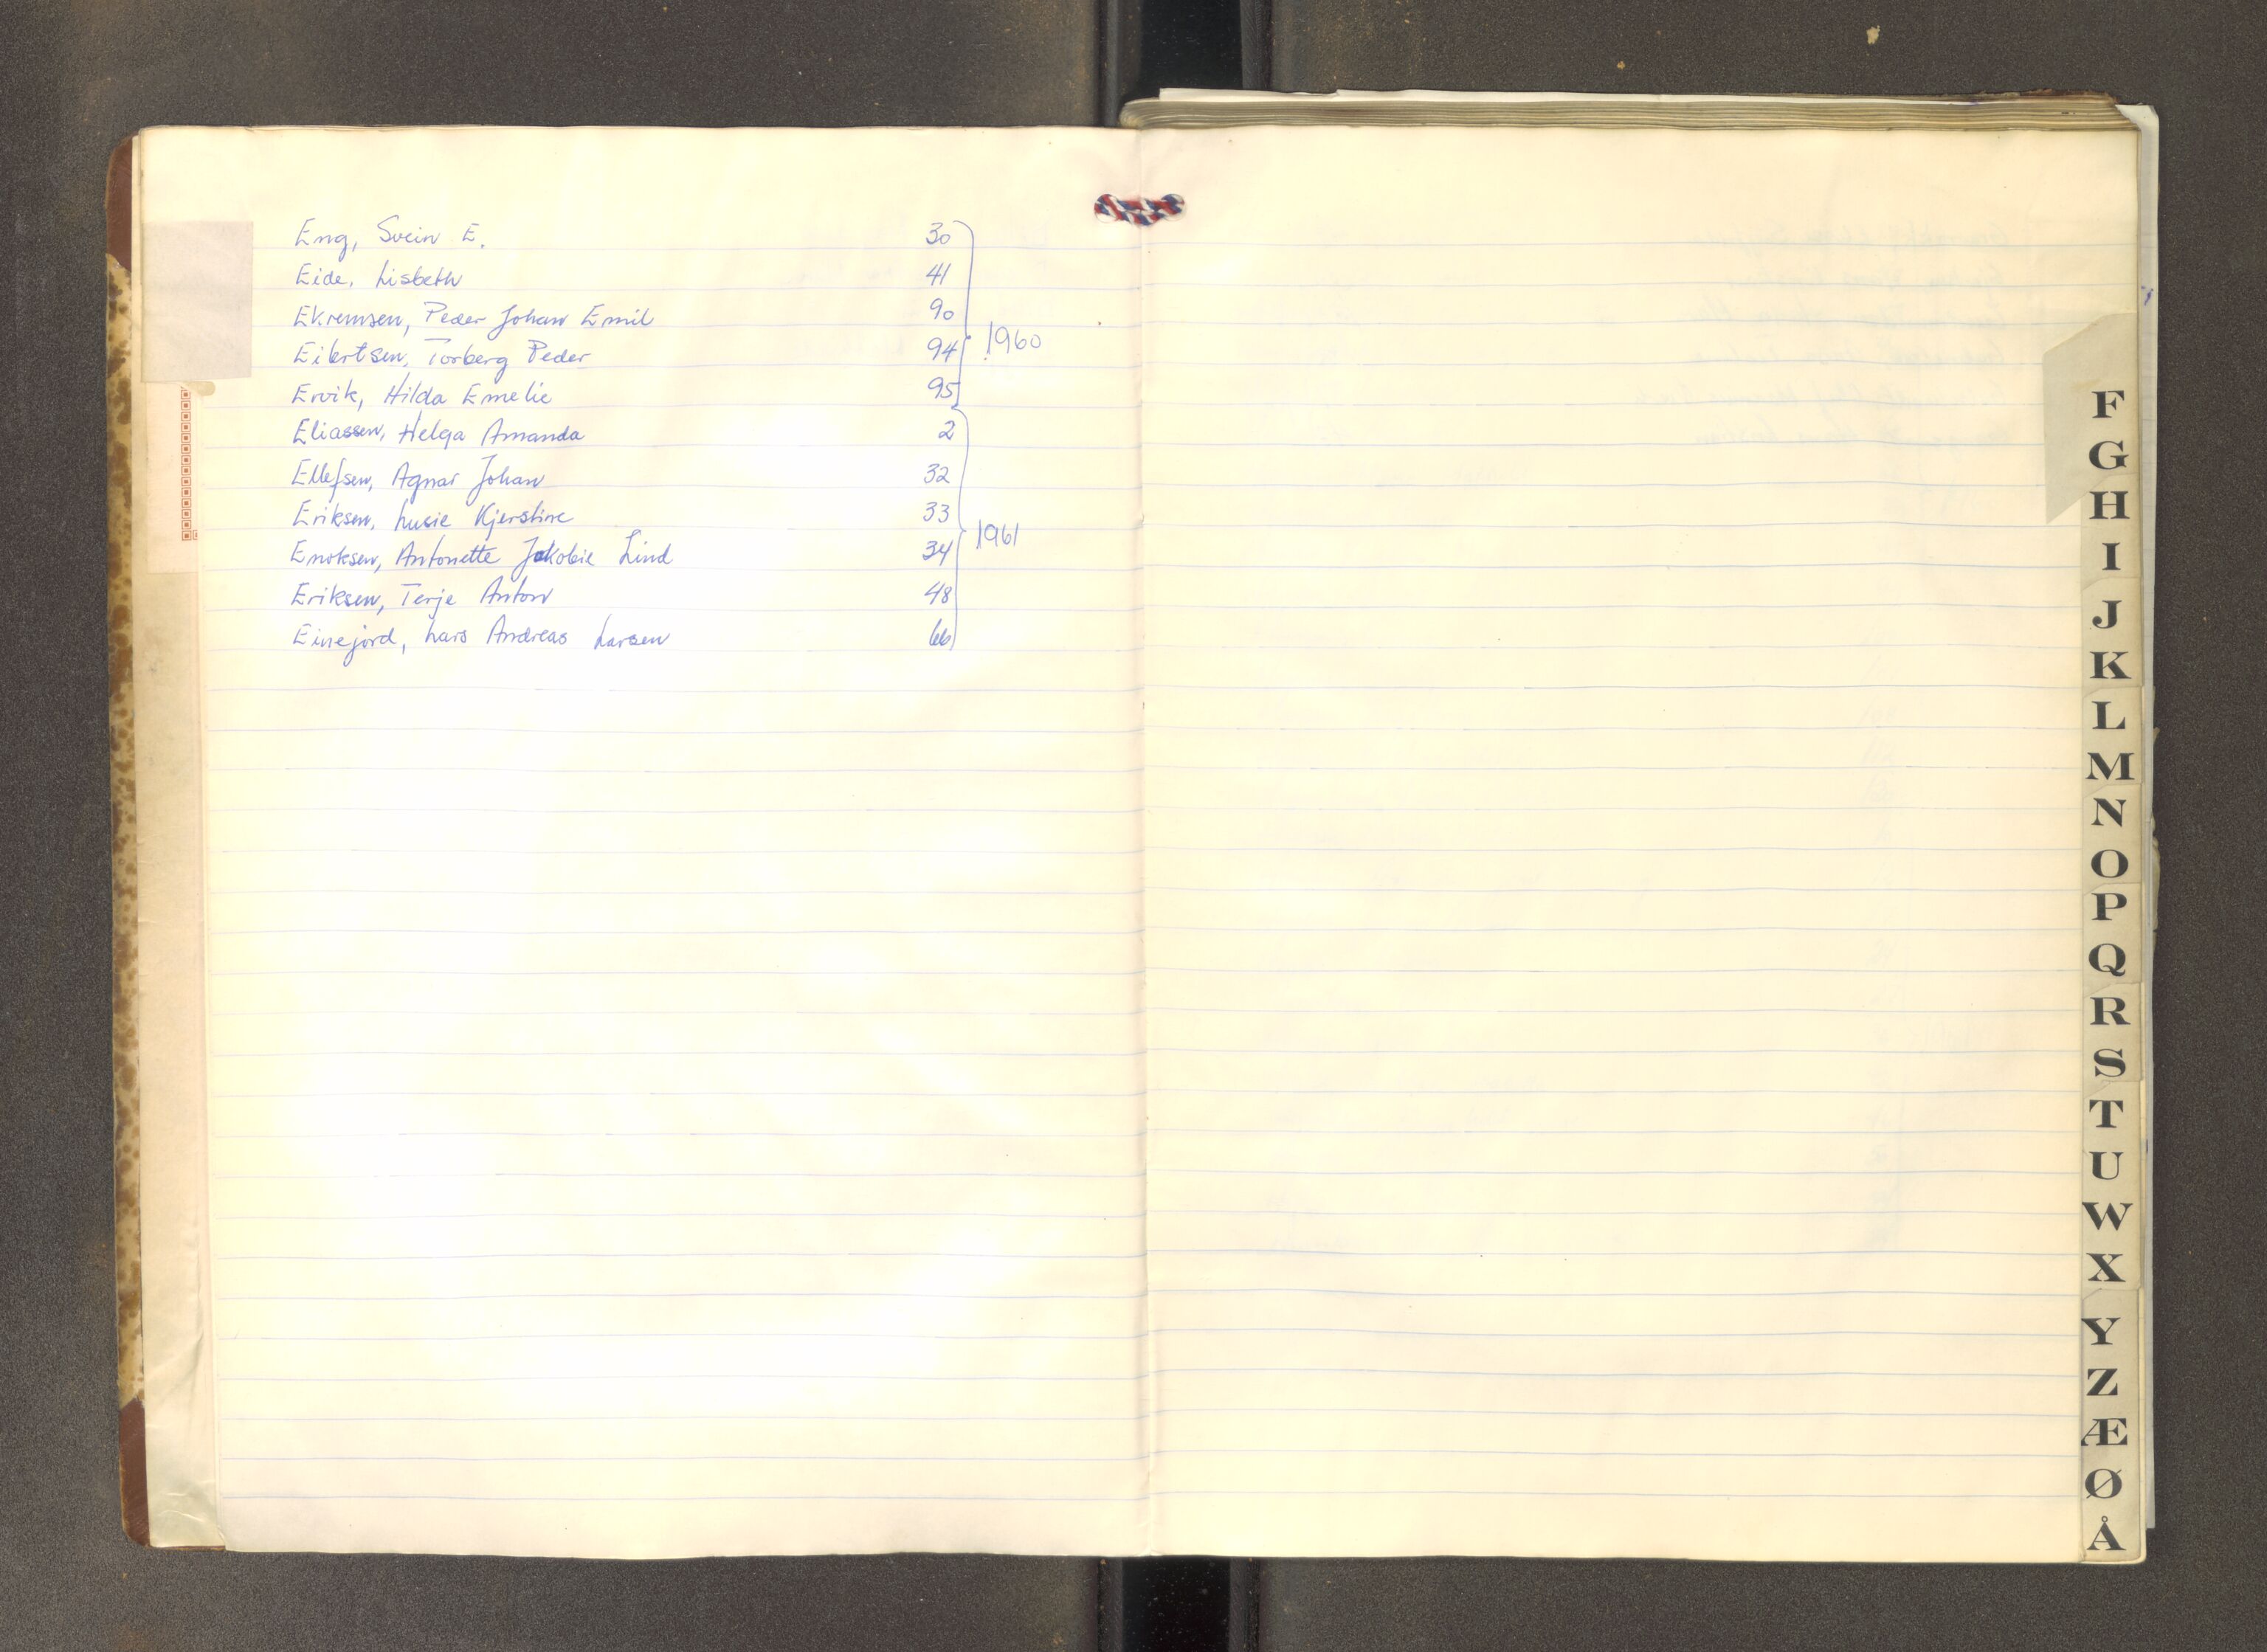 Eng, Svein E. 30
Eide, Lisbeth 41
Ekremsen, Peder Johan Emil 90
Eilertsen, Torberg Peder 94
1960
Ervik, Hilda Emelie 95
Eliassen, Helga Amanda 2
Ellefsen, Agnar Johan 32
Eriksen, Lusie Kjerstine 33
1961
Enoksen, Antonette Jakobie Lind 34
Eriksen, Terje Anton 48
Einejord, Lars Andreas Larsen 66
F
G
H
I
J
K
L
M
N
O
P
Q
R
S
T
U
W
X
Y
Z
Æ
Ø
Å